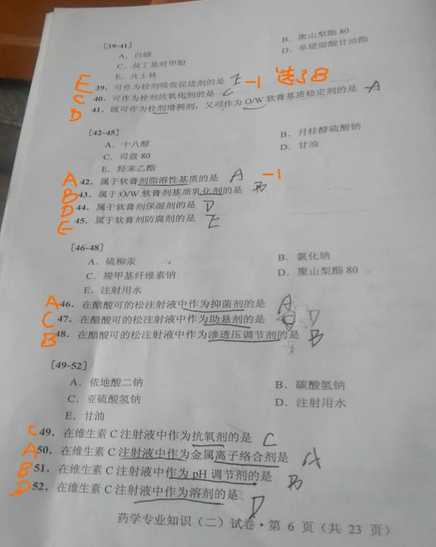 [39-41]
A. 白蜡
B. 聚山梨酯 80
C. 叔丁基对甲酚
D. 单硬脂酸甘油酯
E. 月桂
E 39. 可作为栓剂吸收促进剂的是 E -1 选了B
C 40. 可作为栓剂抗氧化剂的是 C
D 41. 既可作为栓剂增稠剂,又可作为 O/W 软膏基质稳定剂的是 A
[42-45]
A. 十八醇
B. 月桂醇硫酸钠
C. 司盘 80
D. 甘油
E. 羟苯乙酯
A 42. 属于软膏剂脂溶性基质的是 A -1
B 43. 属于 O/W 软膏剂基质乳化剂的是 B
D 44. 属于软膏剂保湿剂的是 D
E 45. 属于软膏剂防腐剂的是 E
[46-48]
A. 硫柳汞
B. 氯化钠
C. 羧甲基纤维素钠
D. 聚山梨酯 80
E. 注射用水
A 46. 在醋酸可的松注射液中作为抑菌剂的是 A
C 47. 在醋酸可的松注射液中作为助悬剂的是 D
B 48. 在醋酸可的松注射液中作为渗透压调节剂的是 B
[49-52]
A. 依地酸二钠
B. 碳酸氢钠
C. 亚硫酸氢钠
D. 注射用水
E. 甘油
C 49. 在维生素 C 注射液中作为抗氧剂的是 C
A 50. 在维生素 C 注射液中作为金属离子络合剂是 A
B 51. 在维生素 C 注射液中作为 pH 调节剂的是 B
D 52. 在维生素 C 注射液中作为溶剂的是 D
药学专业知识(二)试卷·第 6 页(共 23 页)